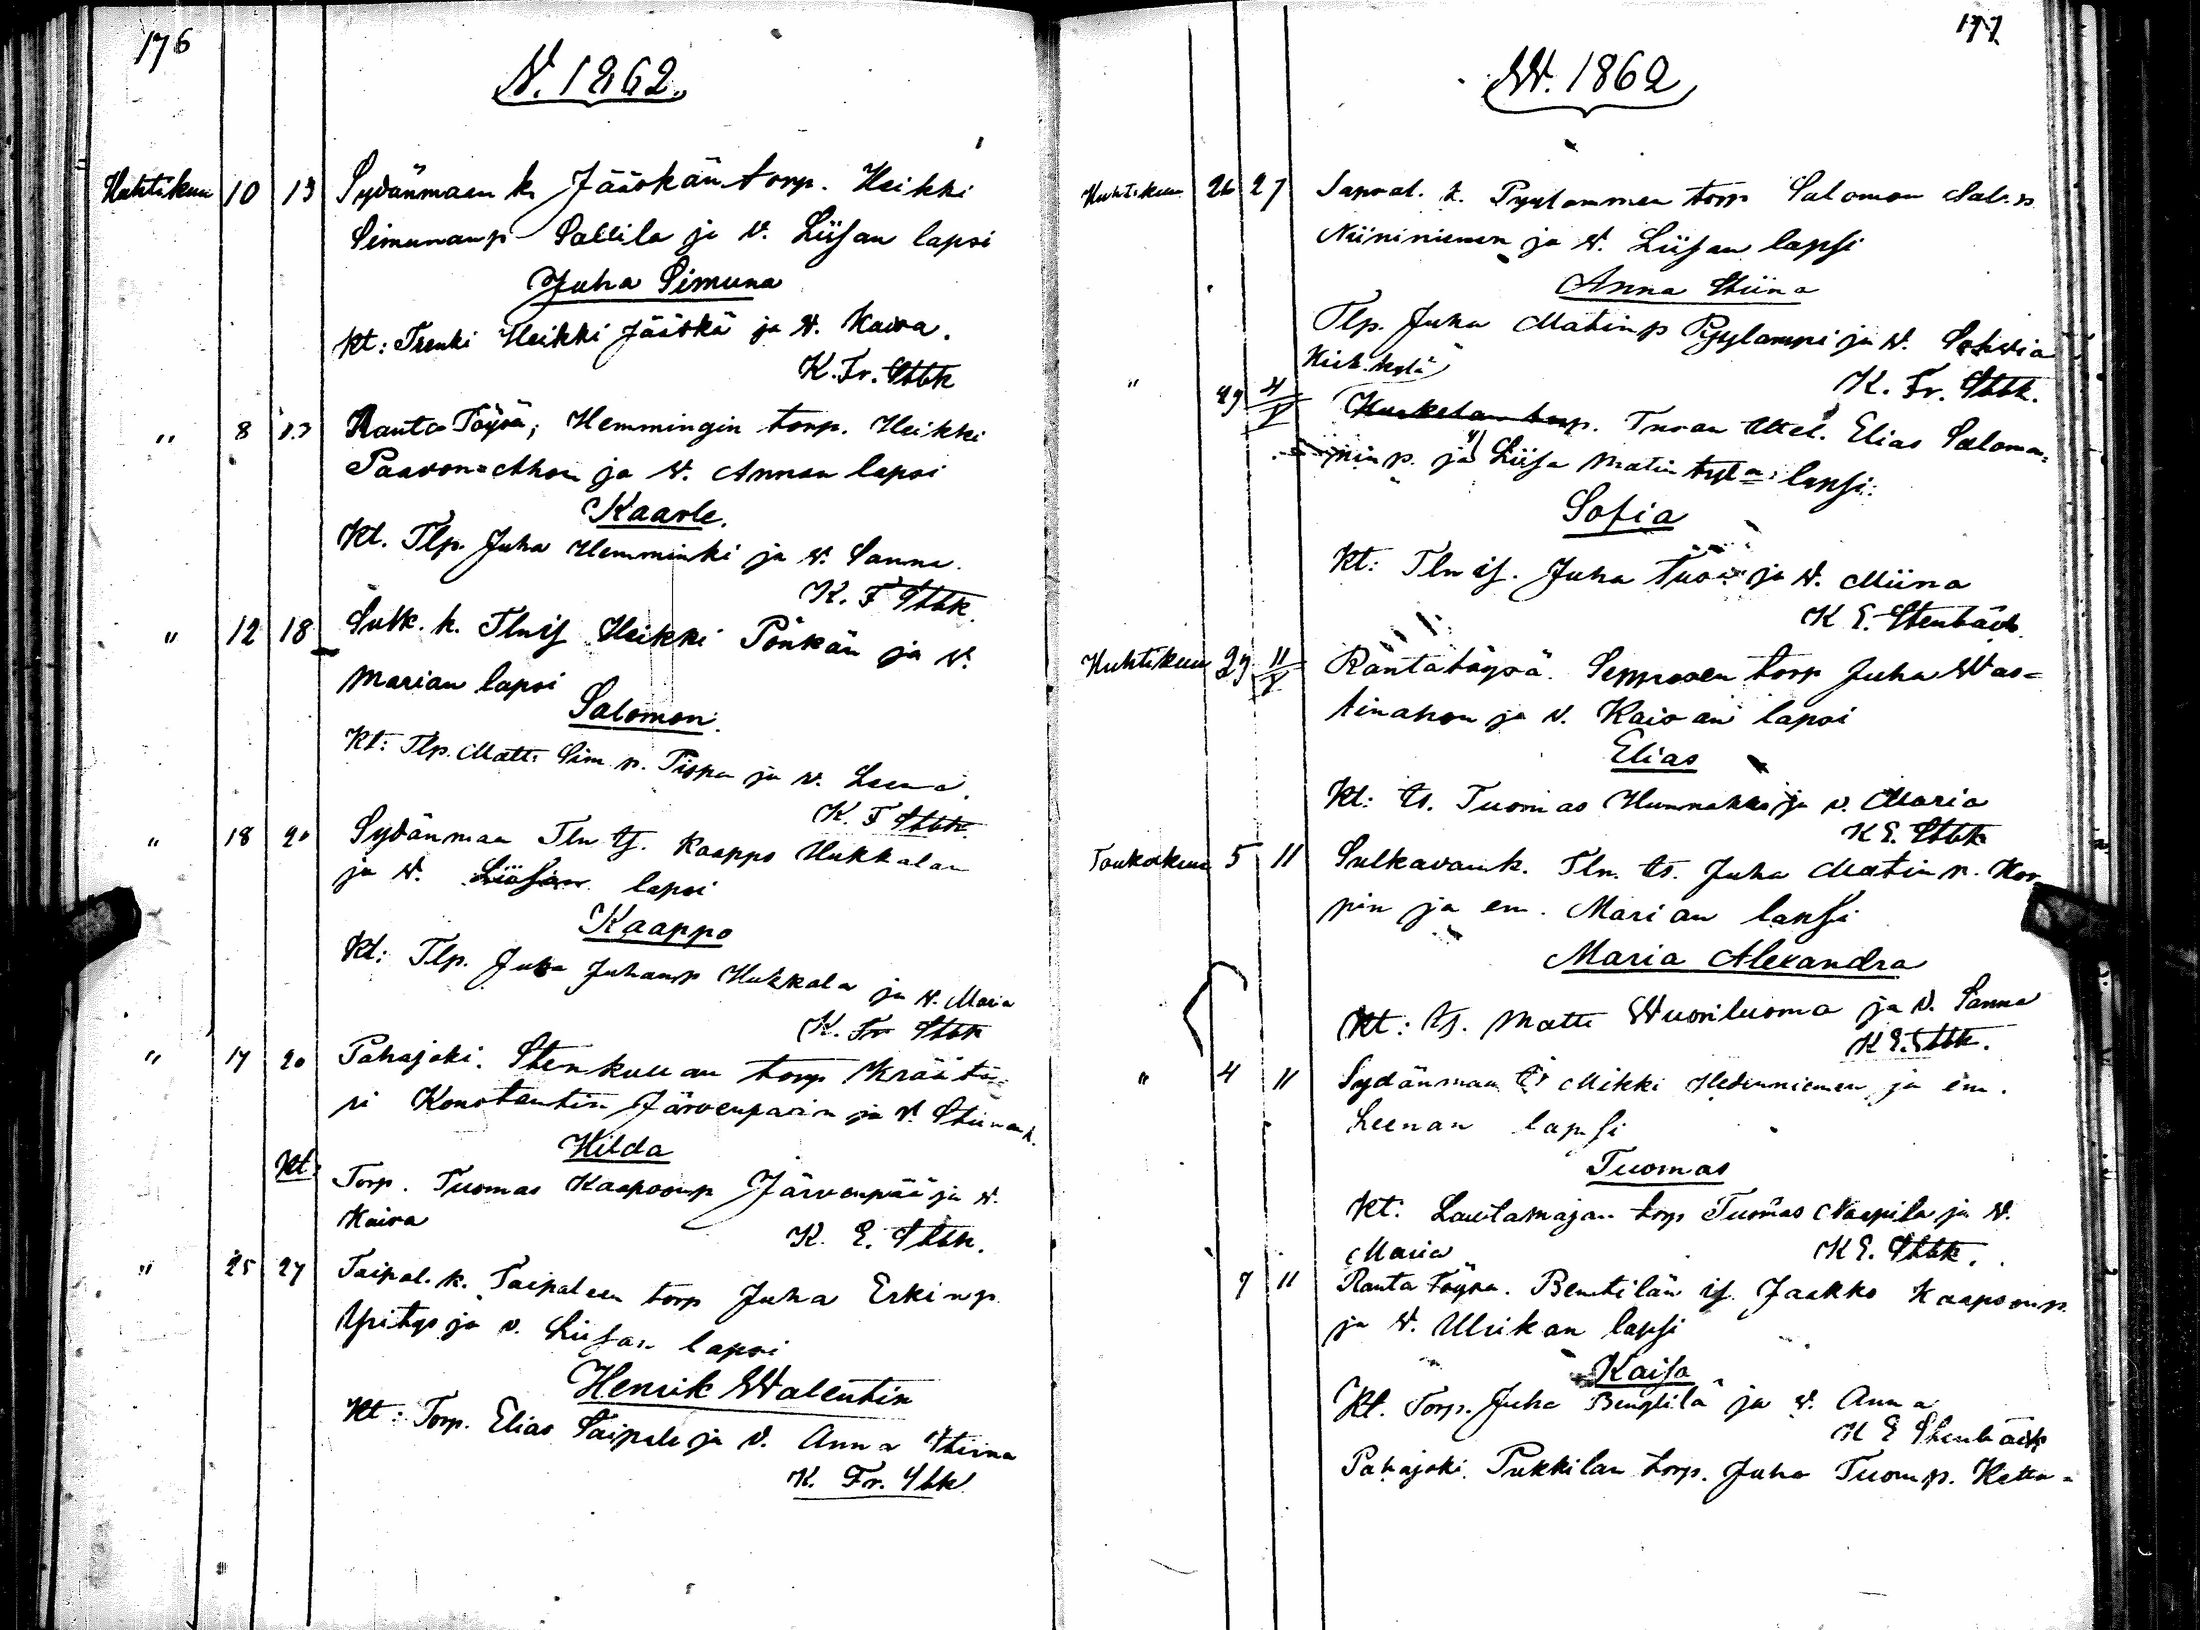 176
V. 1862.
Huhtikuu 10 13 Sydänmaan k. Jääskän torp. Heikki
Simunanp Sallila ja v. Liisan lapsi
Juha Simuna
Kt: Trenki Heikki Jääskä ja v. Kaisa.
K. Fr. Stbk
" 8 13 Ranta Töysä, Hemmingin torp. Heikki
Paavon=Ahon ja v. Annan lapsi
Kaarle.
Kt. Tlp. Juha Hemminki ja v. Sanna.
K. F Stbk.
" 12 18 Sulk. k. Tlnis Heikki Pönkän ja v.
Marian lapsi
Salomon.
Kt: Tlp. Matti Sim p. Pispa ja v. Leena.
K. F Stbk.
" 18 20 Sydänmaa Tln ts. Kaappo Hukkalan
ja v. Liisan lapsi
Kaappo
Kt: Tlp. Juha Juhanp Hukkala ja v. Maria
K. Fr Stbk
" 17 20 Pahajoki. Stenkullan torp Kräätä=
ri Konstantin Järvenpään ja v. Stiinan l.
Hilda
Kt: Torp. Tuomas Kaaponp Järvenpää ja v.
Kaisa
K. E. Stbk.
" 25 27 Taipal. k. Taipaleen torp Juha Erkinp.
Ypitys ja v. Liisan lapsi
Henrik Walentin
Kt: Torp. Elias Taipale ja v. Anna Stiina
K. Fr. Stbk
177
W. 1862
Huhtikuu 26 27 Sapsal. k. Pyylammen torp Salomon Sal. p.
Niininiemen ja v. Liisan lapsi
Anna Stiina
Tlp. Juha Matinp Pyylampi ja v. Sohvia
K. Fr. Stbk.
" 29 4/V torp. Elias Salomo=
nin p. ja Liisa Matin tyt lapsi:
Sofia
Kt: Tlnis. Juha ja v. Miina
K E. Stenbäck
Huhtikuu 29 11/V Rantatöysä. Sepposen torp Juha Was=
tinahon ja v. Kaisan lapsi
Elias
Kt: ts. Tuomas Hunnakko ja v. Maria
K E. Stbk
Toukokuu 5 11 Sulkavank. Tln. ts. Juha Matin p. Kor
pin ja em. Marian lapsi
Maria Alexandra
Kt: ts. Matti Wuoriluoma ja v. Sanna
K E. Stbk.
" 4 11 Sydänmaa ts Mikki Hedenniemen ja em.
Leenan lapsi
Tuomas
Kt. Lautamajan torp Tuomas Naapila ja v.
Maria
K E. Stbk.
7 11 Ranta Töysä. Benttilän is. Jaakko Kaaponp.
ja v. Ulrikan lapsi
Kaisa
Kt. Torp. Juha Bengtilä ja v. Anna
K E Stenbäck
Pahajoki. Pukkilan torp. Juha Tuomp. Ketta=